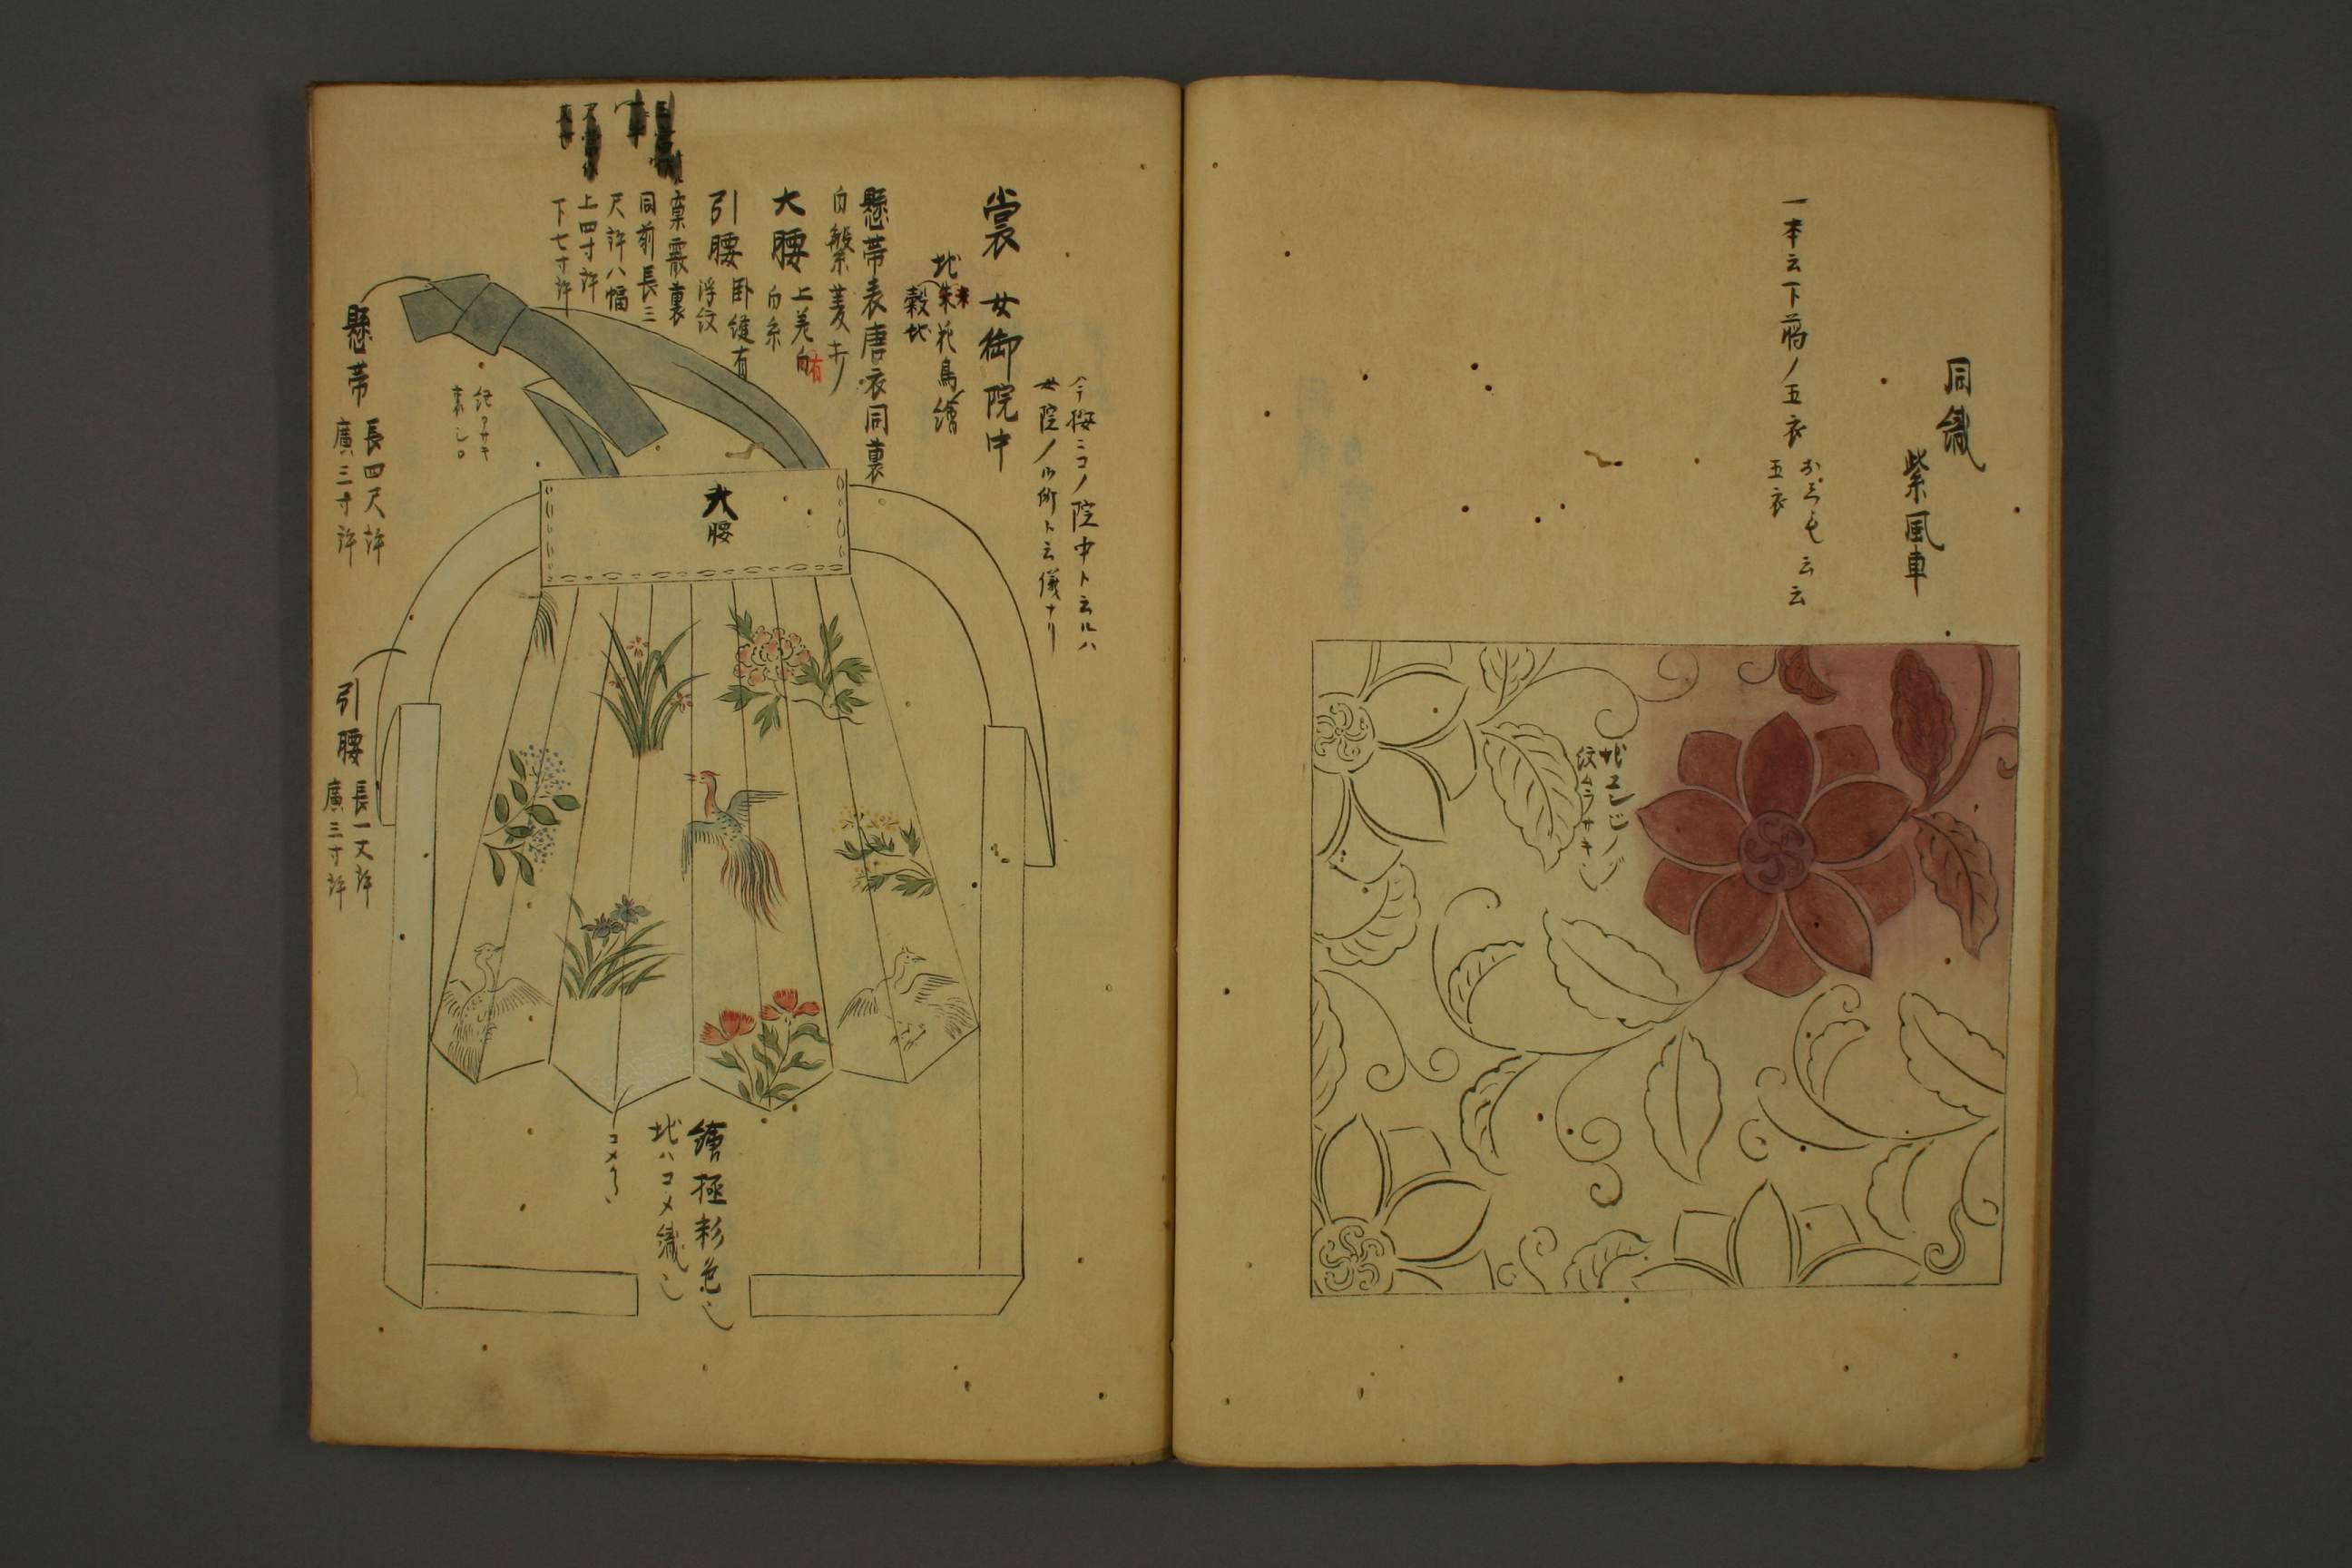 同織
紫風車
一本云下﨟ノ五衣
五衣
云云
地エンジノグ
紋ムラサキ
裳 女御院中
今按ニコノ院中ト云ルハ
女院ノ御所ト云儀ナリ
地朱花鳥繪
穀地
懸帯表唐衣同裏
白繁菱
大腰
上差白有
白糸
引腰
卧縫有
浮紋
裏
同前長三
尺許八幅
上四寸許
下七寸許
懸帯
長四尺許
廣三寸許
大腰
引腰
長一丈許
廣三寸許
繪極彩色
地ハコメ織